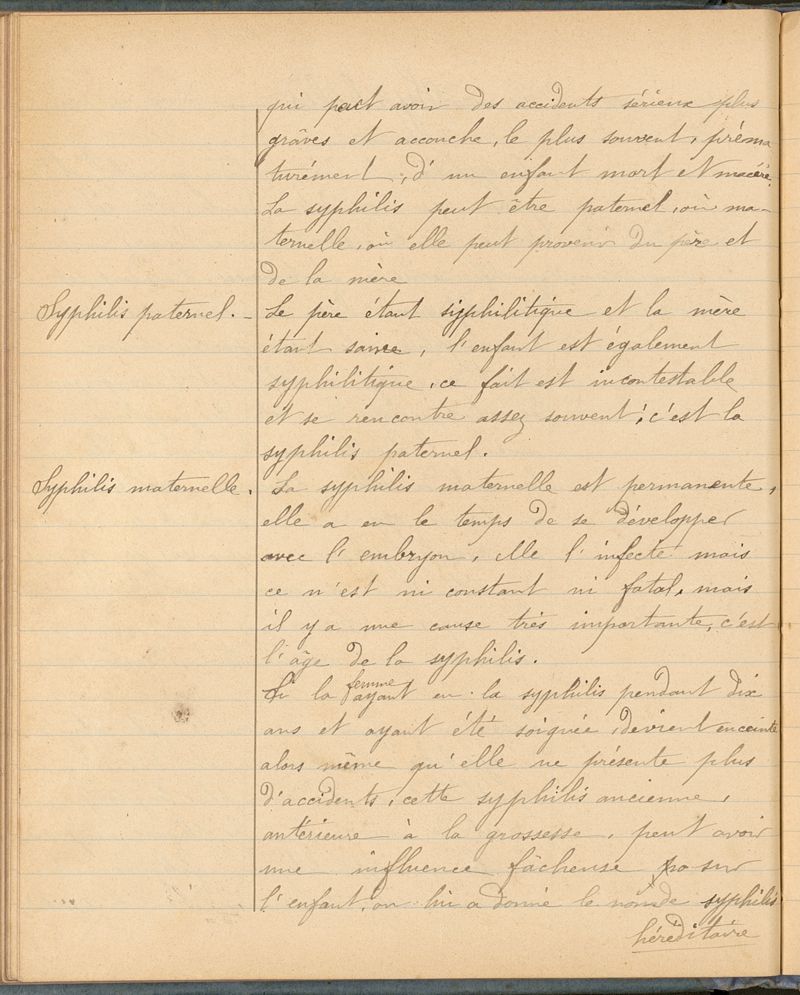 qui peut avoir des accidents sérieux plus
grâves et accouche, le plus souvent, préma
turément, d'un enfant mort et macéré.
La syphilis peut être paternel, où ma-
ternelle, où elle peut provenir du père et
de la mère
Syphilis paternel. - Le père étant siphilitique et la mère
étant saine, l'enfant est également
syphilitique, ce fait est incontestable
et se rencontre assez souvent; c'est la
syphilis paternel.
Syphilis maternelle. La syphilis maternelle est permanente,
elle a eu le temps de se développer
avec l'embryon, elle l'infecte mais
ce n'est ni constant ni fatal, mais
il y a une cause très importante, c'est
l'âge de la syphilis.
Si la femme ayant eu la syphilis pendant dix
ans et ayant été soignée, devient enceinte
alors même qu'elle ne présente plus
d'accidents, cette syphilis ancienne,
antérieure à la grossesse, peut avoir
une influence fâcheuse sur
l'enfant, on lui a donné le nom de syphilis
héréditaire